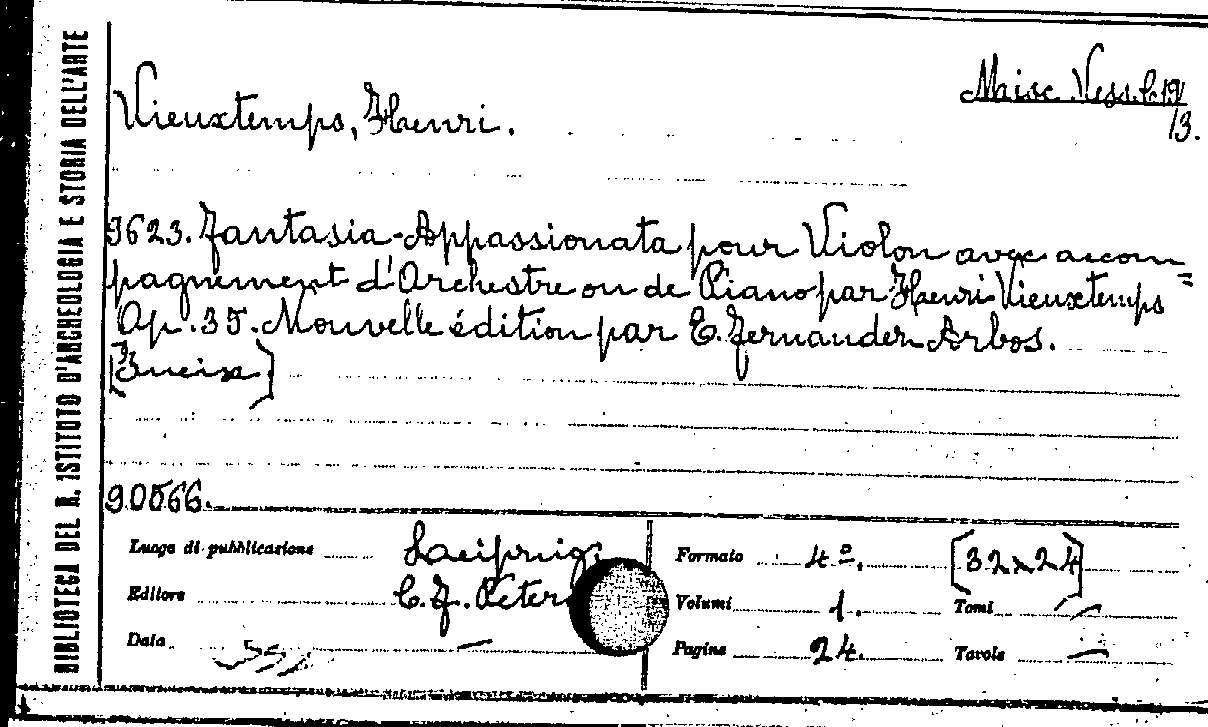 BIBLIOTECA DEL R. ISTITUTO D'ARCHEOLOGIA E STORIA DELL'ARTE
Misc. Vess. b. 19/
13.
Vieuxtemps, Henri.
9623. Fantasia-Appassionata pour Violon avec accom=
pagnement d'Orchestre ou de Piano par Henri Vieuxtemps
Op. 35. Nouvelle édition par E. Fernandez Arbos.
90566.
Luogo di pubblicazione Laeipzig
Formato 4º. [32x24]
Editore C. F. Peters
Volumi 1. Tomi —
Data —
Pagine 24. Tavole —